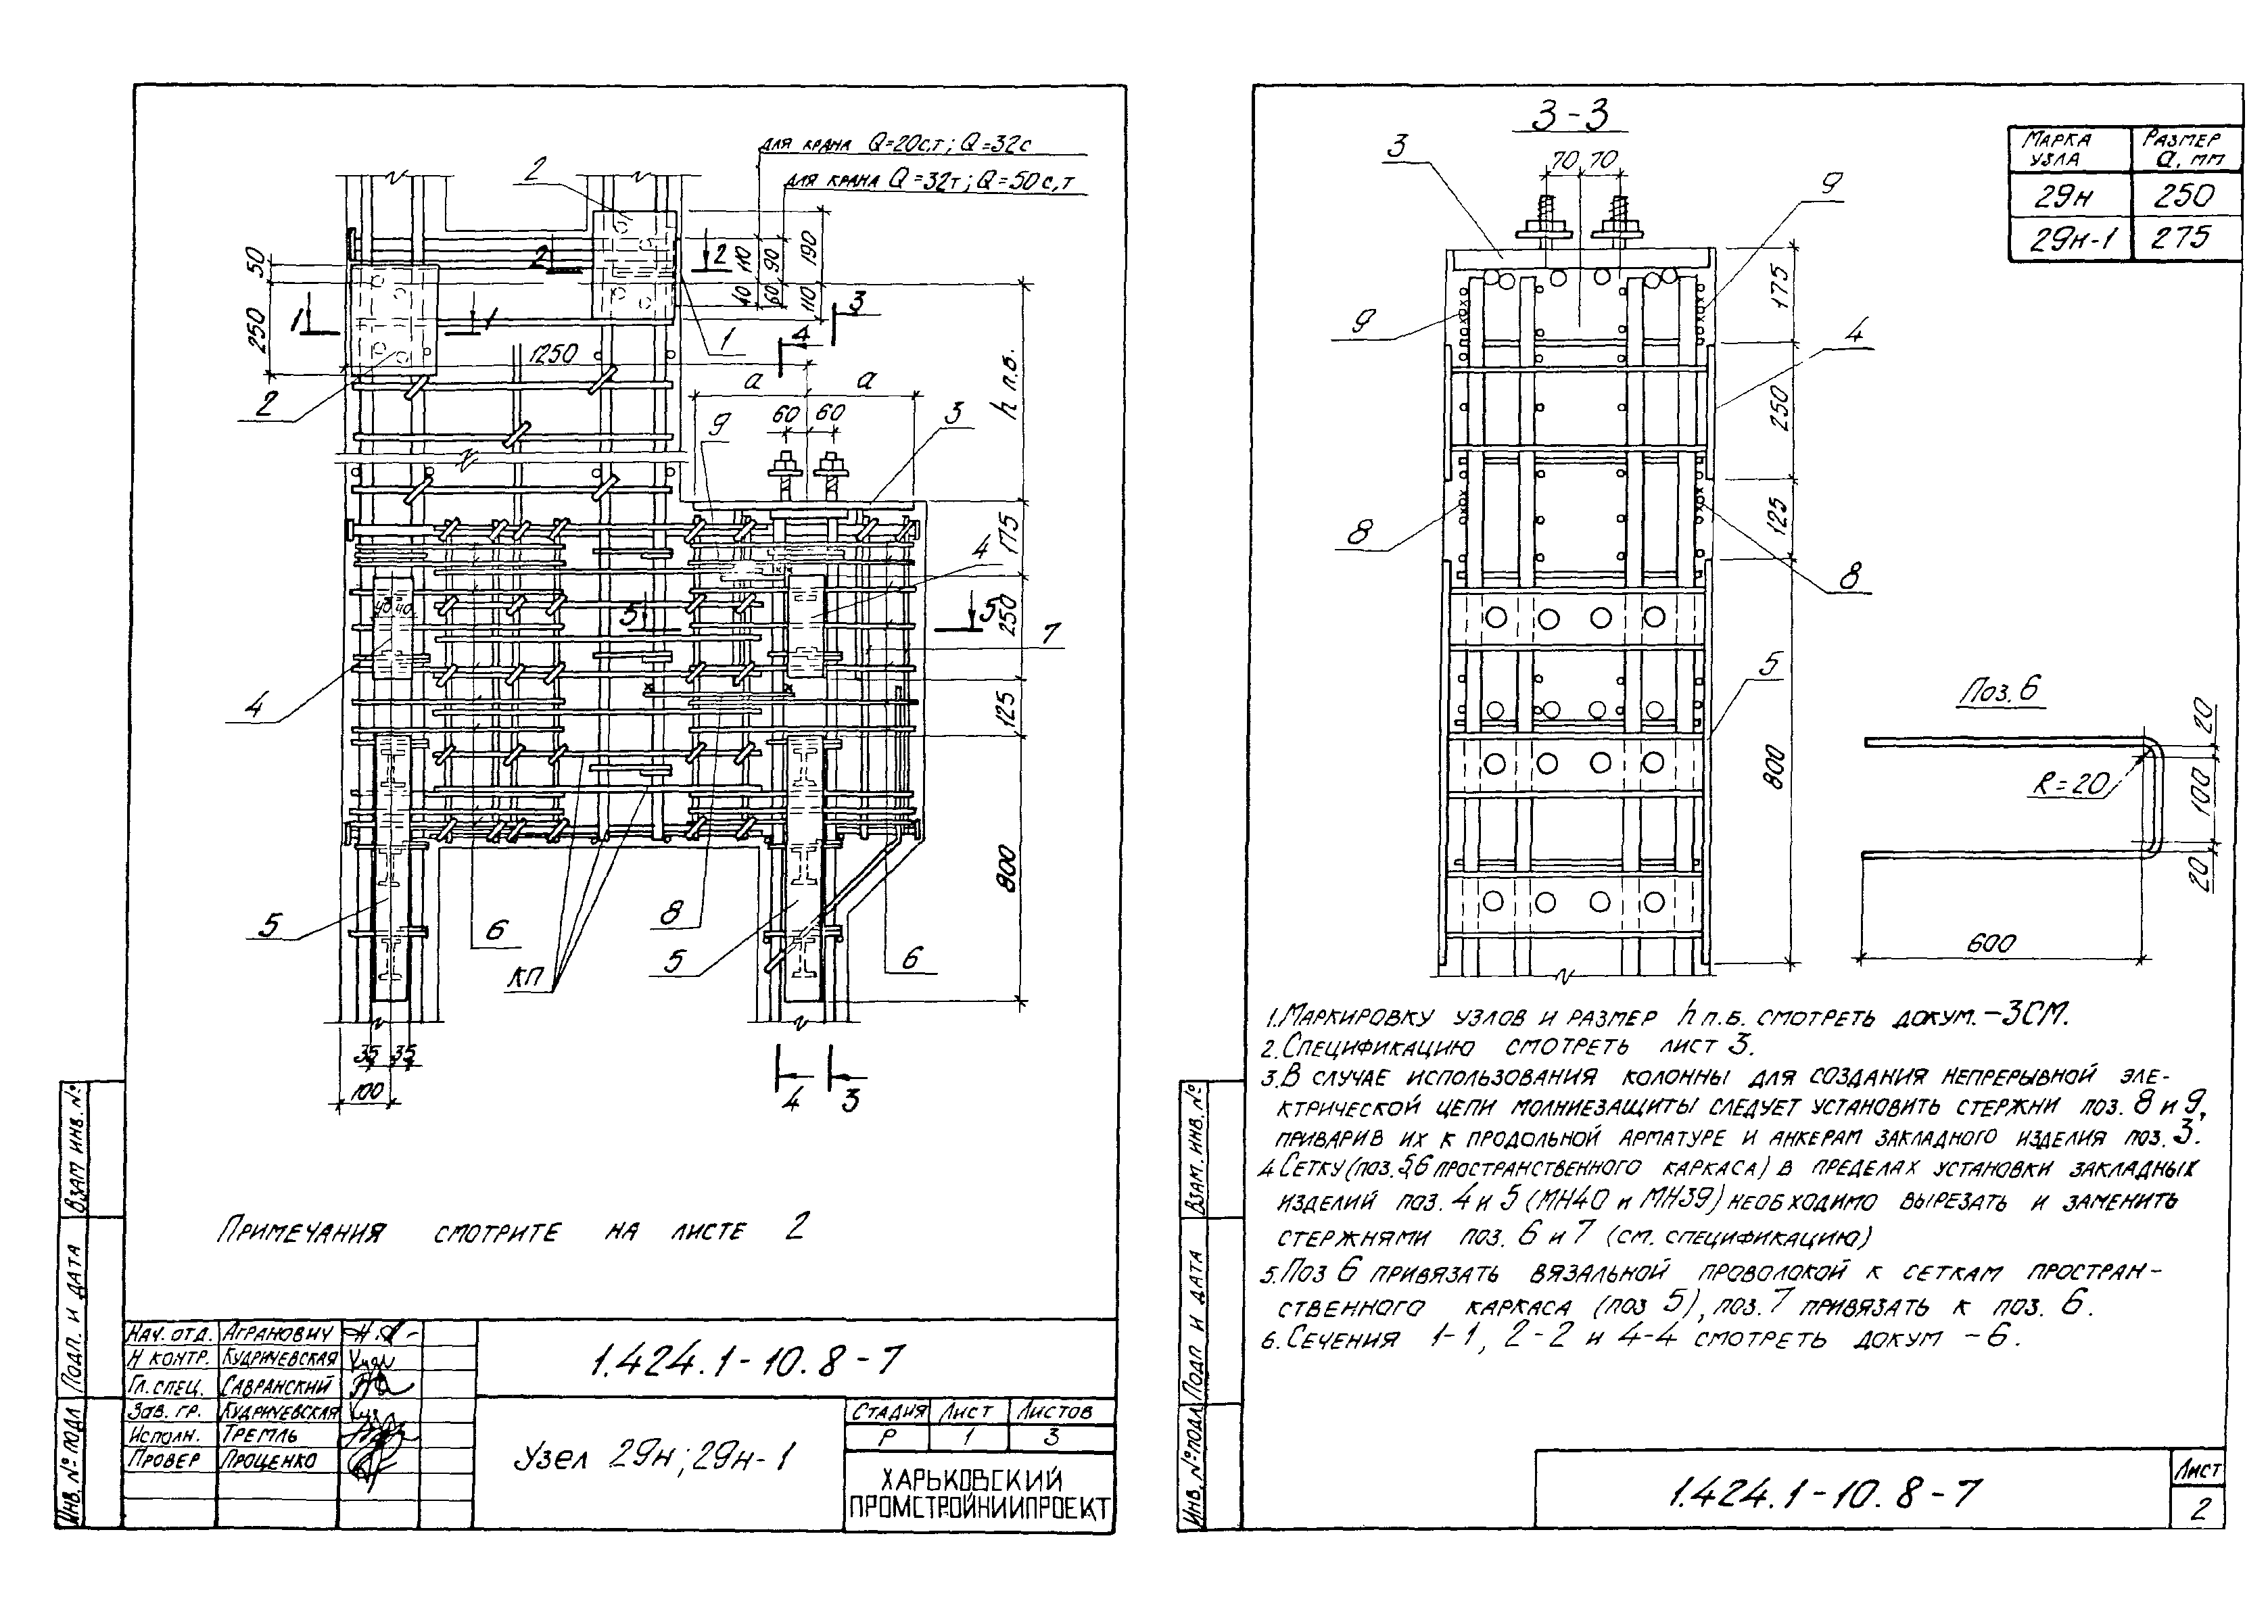 для крана Q=20с,т; Q=32с
для крана Q=32т; Q=50с,т
2
50
250
1
1
2
2
110
40
90
60
190
110
3
4
1
2
1250
h п.в.
а
а
60
60
9
3
175
4
40 40
5
5
250
7
4
125
800
5
6
8
5
6
КП
35
35
100
4
3
Примечания смотрите на листе 2
Нач. отд.
Агранович
Н контр.
Кудричевская
Гл. спец.
Савранский
Зав. гр.
Кудричевская
Исполн.
Тремль
Провер
Проценко
1.424.1-10.8-7
Узел 29н; 29н-1
Стадия
Лист
Листов
Р
1
3
ХАРЬКОВСКИЙ
ПРОМСТРОЙНИИПРОЕКТ
Взам инв. №
Подп. и дата
Инв. № подл
3-3
3
70
70
9
9
175
4
250
8
8
125
5
800
Марка узла
Размер а, мм
29н
250
29н-1
275
Поз. 6
20
R=20
100
20
600
1. Маркировку узлов и размер h п.в. смотреть докум. -3СМ.
2. Спецификацию смотреть лист 3.
3. В случае использования колонны для создания непрерывной эле-
ктрической цепи молниезащиты следует установить стержни поз. 8 и 9,
приварив их к продольной арматуре и анкерам закладного изделия поз. 3.
4. Сетку (поз. 5,6 пространственного каркаса) в пределах установки закладных
изделий поз. 4 и 5 (МН40 и МН39) необходимо вырезать и заменить
стержнями поз. 6 и 7 (см. спецификацию)
5. Поз 6 привязать вязальной проволокой к сеткам простран-
ственного каркаса (поз 5), поз. 7 привязать к поз. 6.
6. Сечения 1-1, 2-2 и 4-4 смотреть докум -6.
Взам. инв. №
Подп и дата
Инв. № подл
1.424.1-10.8-7
Лист
2